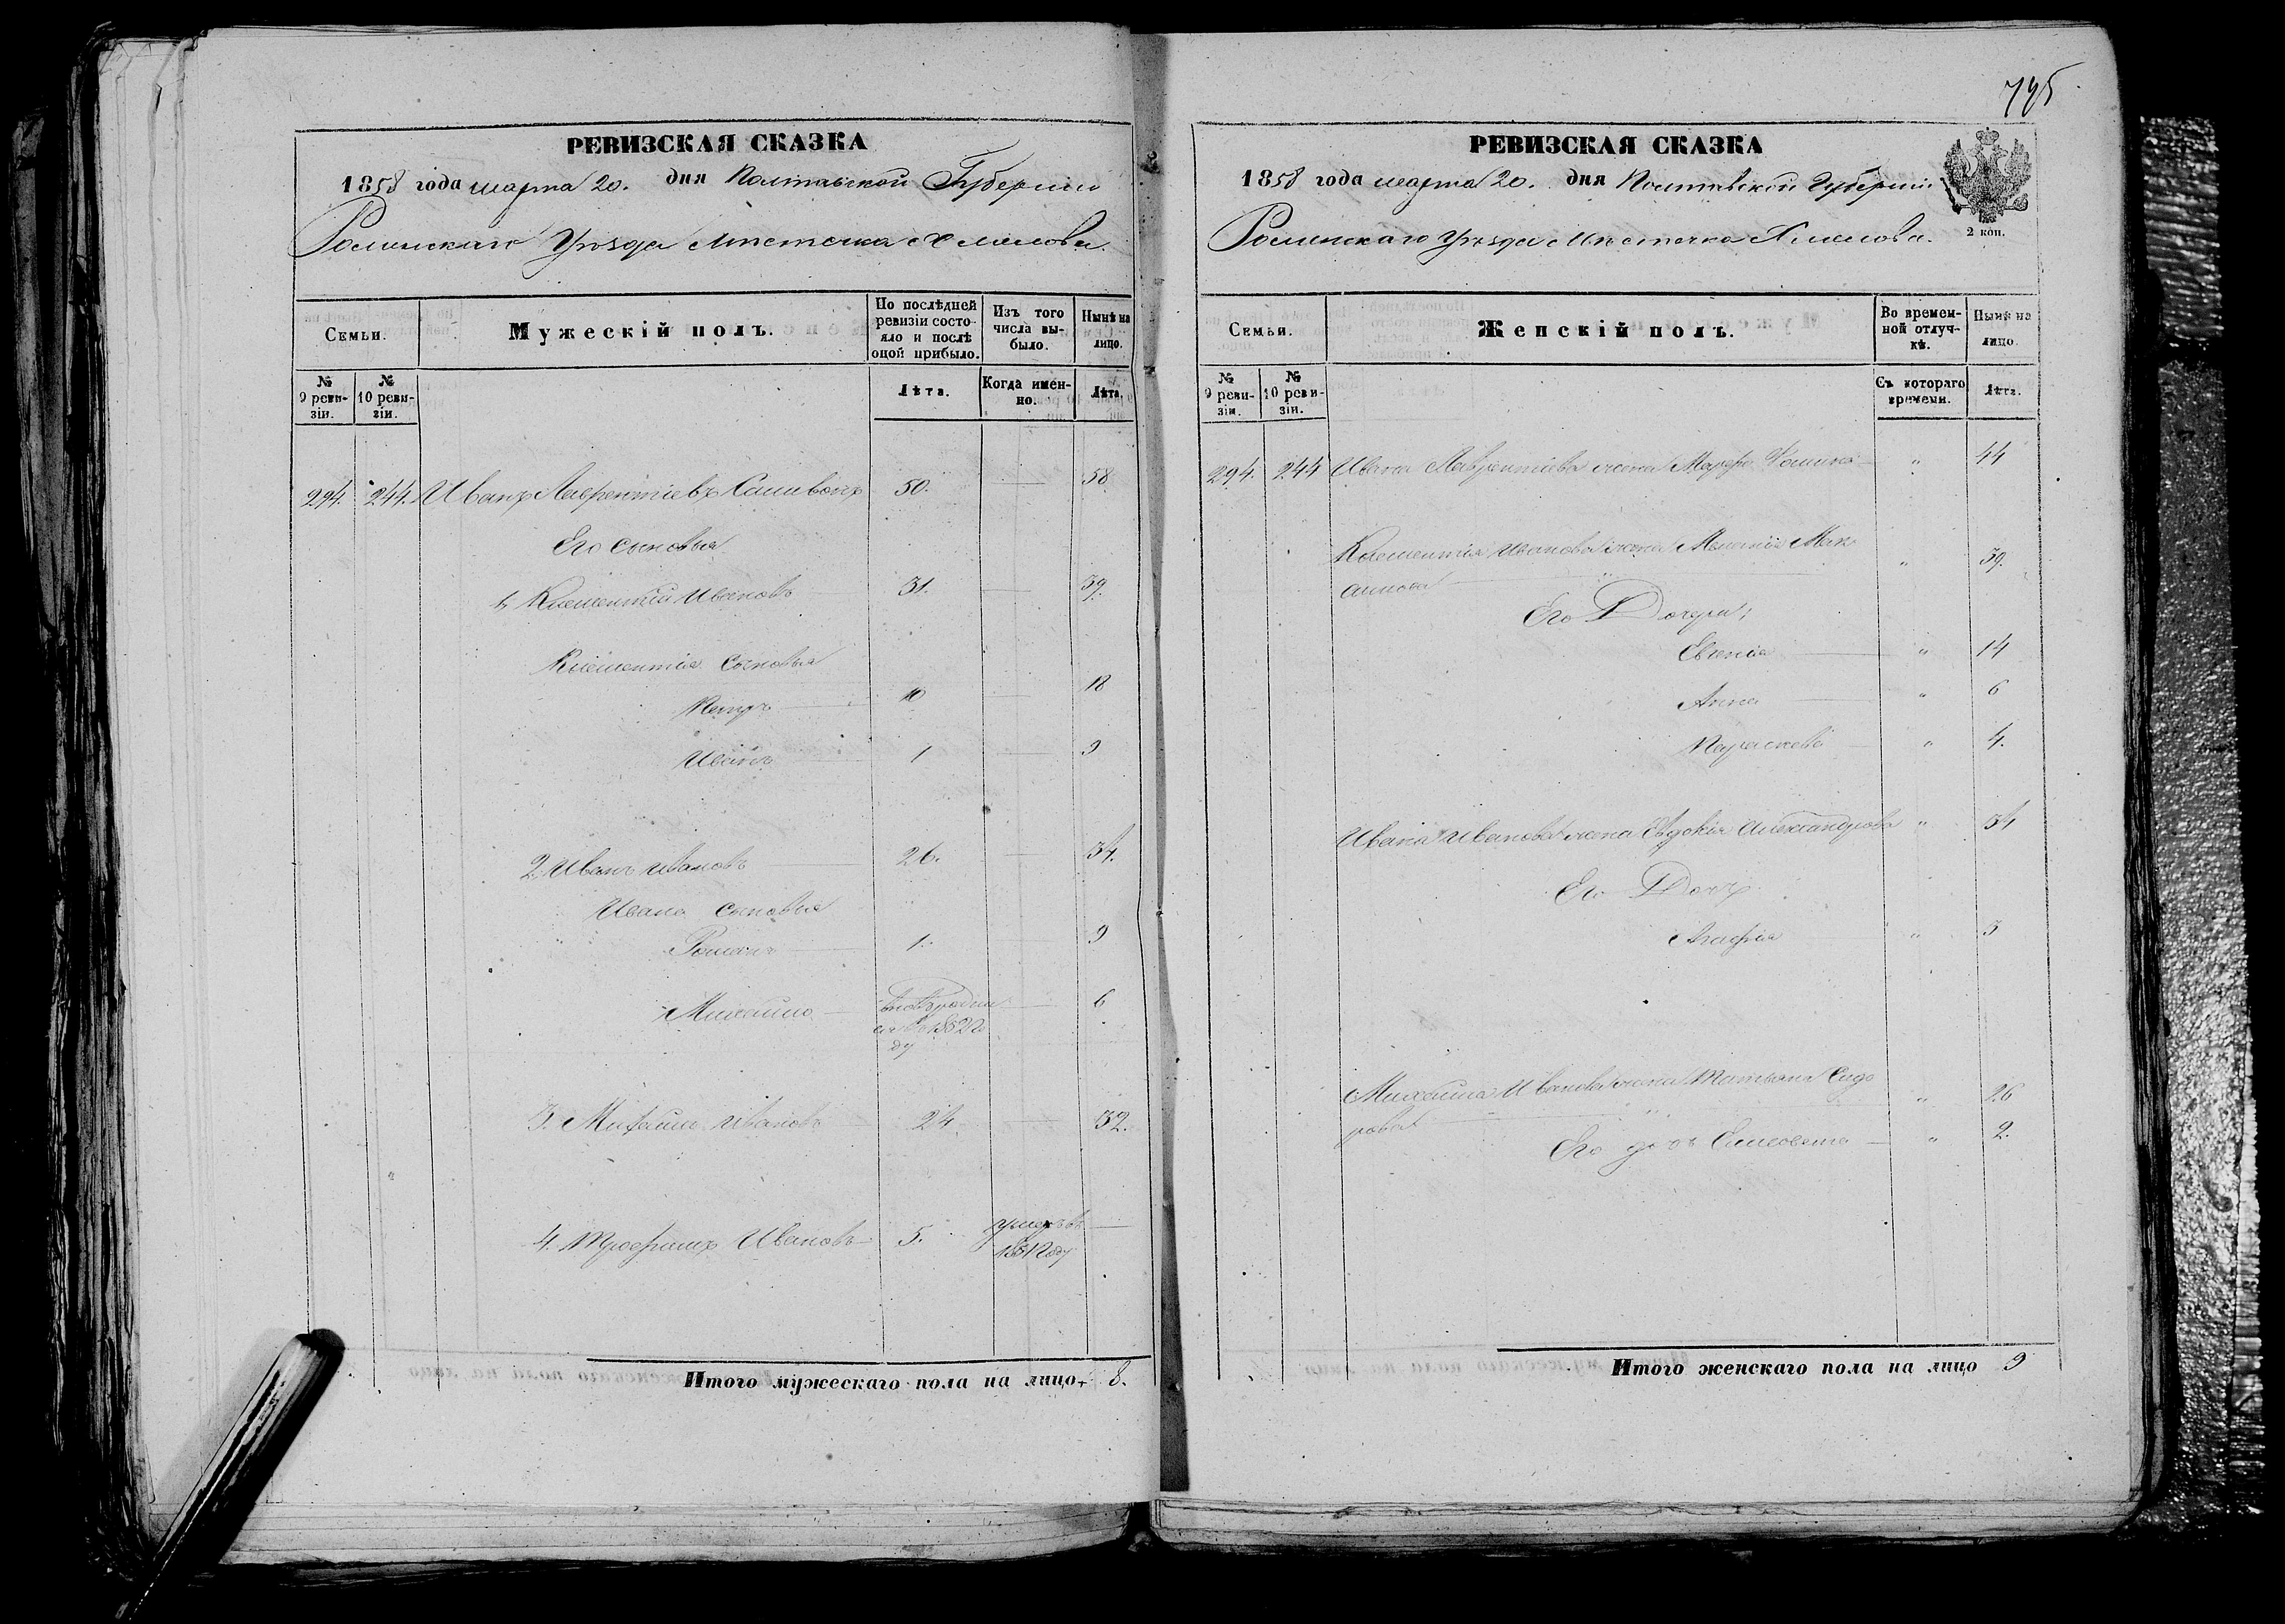 745
РЕВИЗСКАЯ СКАЗКА
1858 года марта 20. дня Полтавской Губернии
Роменскаго Уѣзда Мѣстечка Хмелова.
Семьи.
Мужескій полъ.
По послѣдней ревизіи состояло и послѣ оной прибыло.
Изъ того числа выбыло.
Нынѣ на лицо.
№ 9 ревизіи.
№ 10 ревизіи.
Лѣта.
Когда именно.
Лѣта.
294. 244. Иванъ Лаврентіевъ 50. 58
Его сыновья
1, Климентій Ивановъ 31. 39.
Климентія сыновья
Петръ 10 18
Иванъ 1 9
2. Иванъ Ивановъ 26. 34.
Ивана сыновья
Романъ 1. 9
Михаило 6
3. Михаилъ Ивановъ 24. 32.
4. Трофимъ Ивановъ 5. умеръ въ
1851 году
Итого мужескаго пола на лицо 8.
РЕВИЗСКАЯ СКАЗКА
1858 года марта 20. дня Полтавской Губерніи
Роменскаго Уѣзда Мѣстечка Хмелова.
2 коп.
Семьи.
Женскій полъ.
Во временной отлучкѣ.
Нынѣ на лицо.
№ 9 ревизіи.
№ 10 ревизіи.
Съ котораго времени.
Лѣта.
294. 244 Ивана Лаврентіева жена Марфа " 44
Климентія Иванова жена Меланія Мак
симова " 39.
Его Дочери,
Евгенія " 14
Анна " 6
Параскева " 4.
Ивана Иванова жена Евдокія Александрова " 34
Его Дочь
Агафія " 3
Михаила Иванова жена Татьяна Сидо
рова " 26
Его дочь Елисавета " 2.
Итого женскаго пола на лицо 9